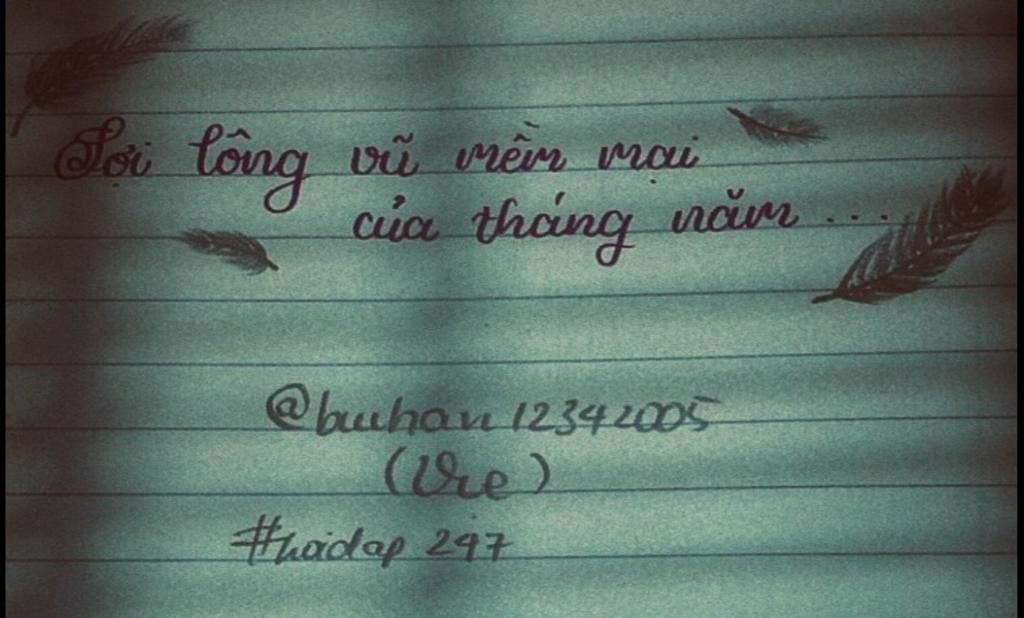 Sợi lông vũ mềm mại
của tháng năm ...
@buuhan12342005
(Vie)
#hoidap 247